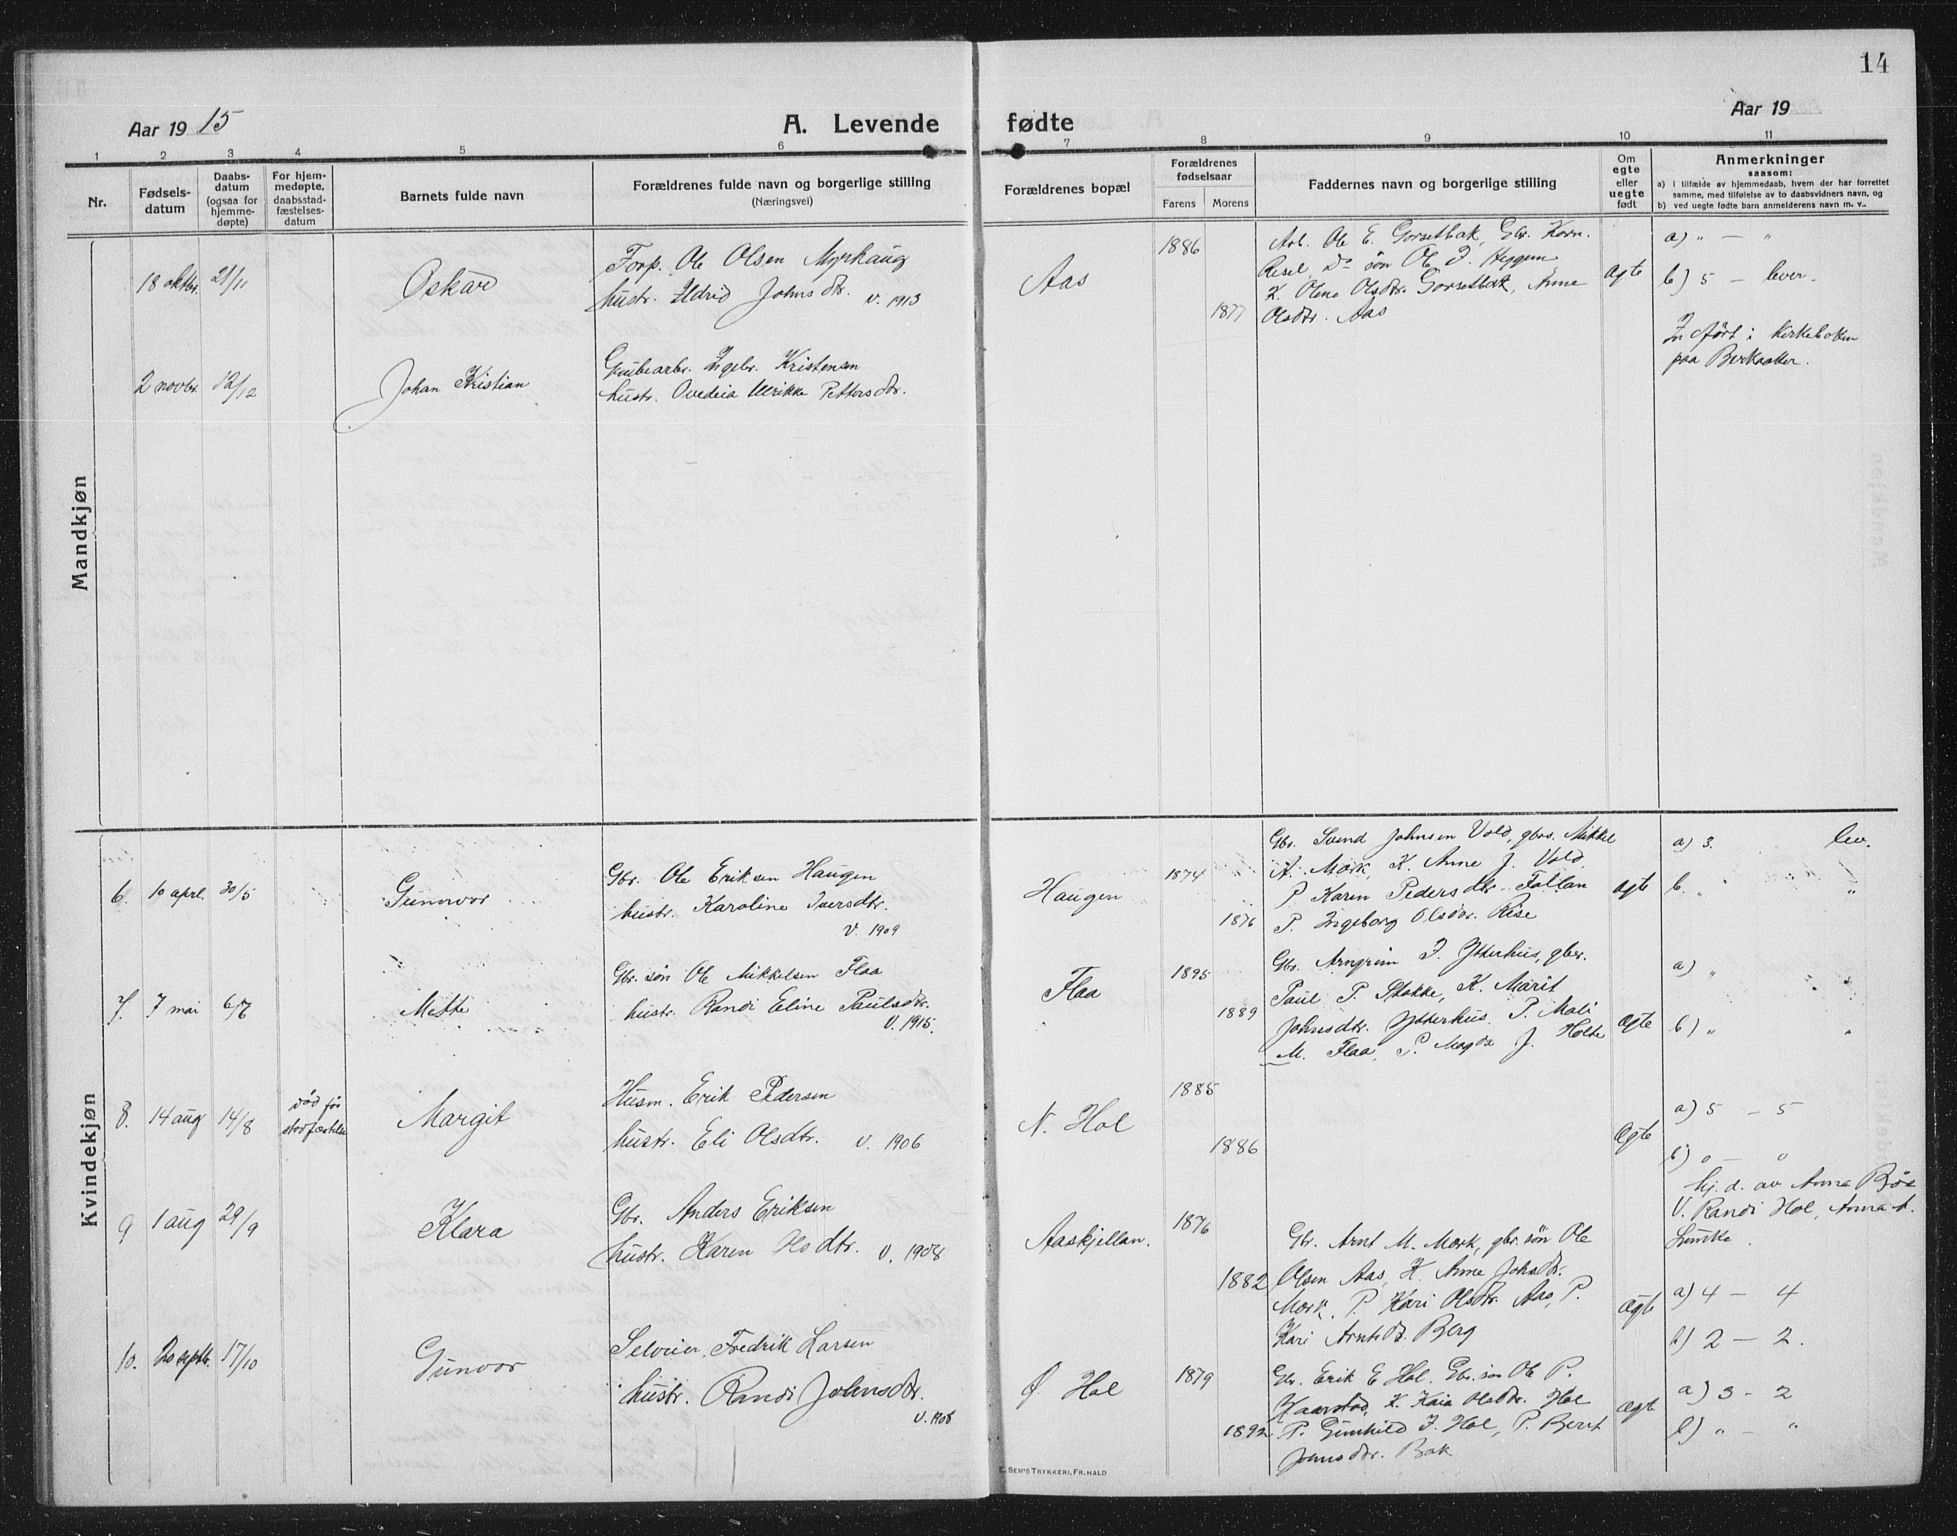 14
Aar 1915
A. Levende fødte
Aar 19
1 2 3 4 5 6 7 8 9 10 11
Nr.
Fødsels-
datum
Daabs-
datum
(ogsaa for
hjemme-
døpte)
For hjem-
medøpte,
daabsstad-
fæstelses-
datum
Barnets fulde navn
Forældrenes fulde navn og borgerlige stilling
(Næringsvei)
Forældrenes bopæl
Forældrenes
fødselsaar
Farens Morens
Faddernes navn og borgerlige stilling
Om
egte
eller
uegte
født
Anmerkninger
saasom:
a) i tilfælde av hjemmedaab, hvem der har forrettet
samme, med tilføielse av to daabsvidners navn, og
b) ved uegte fødte barn anmelderens navn m. v..
Mandkjøn
18 oktbr. 21/11
Oskar
Forp. Ole Olsen Myrhaug
hustr. Ildrid Johnsdtr. v. 1913
Aas
1886
1877
Arb. Ole E. Gorsetbak, Gbr. Korn.
Risel, Do søn Ole J. Heggem
K. Oline Olsdtr. Gorsetbak, Anne
Olsdtr. Aas
ægte
a) " — "
b) 5 — lever.
2 novbr. 12/12
Johan Kristian
Grubearbr. Ingebr. Kristensen
hustr. Ovedia Ulrikke Pettersdtr.
Indført i kirkeboken
paa Berkaaker.
Kvindekjøn
6. 10 apr. 30/5
Gunvor
Gbr. Ole Eriksen Haugen
hustr. Karoline Iversdtr.
v. 1909
Haugen
1874
1876
Gbr. Svend Johnsen Vold, gbrs. Mikkel
A. Mork, K. Anne J. Vold
P. Karen Pedersdtr. Fallan
P. Ingeborg Olsdtr. Rise
ægte
a) 3. lev.
b. " "
7. 7 mai 6/7
Mette
Gbr. søn Ole Mikkelsen Flaa
hustr. Randi Eline Paulsdtr.
v. 1915.
Flaa
1895
1889
Gbr. Arngrim J. Ytterhus, gbr.
Paul P. Stokke, K. Marit
Johnsdtr. Ytterhus. P. Mali
M. Flaa, P. Magda J. Holte
ægte
a) "
b) " "
8. 14 aug 14/8
død før
stadfæstelse
Margit
Husm. Erik Pedersen
hustr. Eli Olsdtr. v. 1906
N. Hol
1885
1886
ægte
a) 5 — 5
b) 0 — 0
hj. d. av Anna Bøe
V. Randi Hol, Anna A.
9 1 aug 29/9
Klara
Gbr. Anders Eriksen
hustr. Karen Olsdtr. v. 1908
Aaskjellan.
1876
1882
Gbr. Arnt M. Mork, gbr. søn Ole
Olsen Aas, K. Anne Johsdtr.
Mork, P. Kari Olsdtr. Aas, P.
Kari Arntsdtr. Berg
ægte
a) 4 — 4
b) 2 — 2.
10. 20 septbr. 17/10
Gunvor
Selveier Fredrik Larsen
hustr. Randi Johnsdtr.
v. 1908
Ø. Hol
1879
1892
Gbr. Erik E Hol, Gbr. søn Ole P.
Kaarstad, K. Kaia Olsdtr. Hol
P. Gunhild J. Hol, P. Berit
Johnsdtr. Bak
ægte
a) 3 - 2
b) " — "
E. SEM'S TRYKKERI, FR.HALD